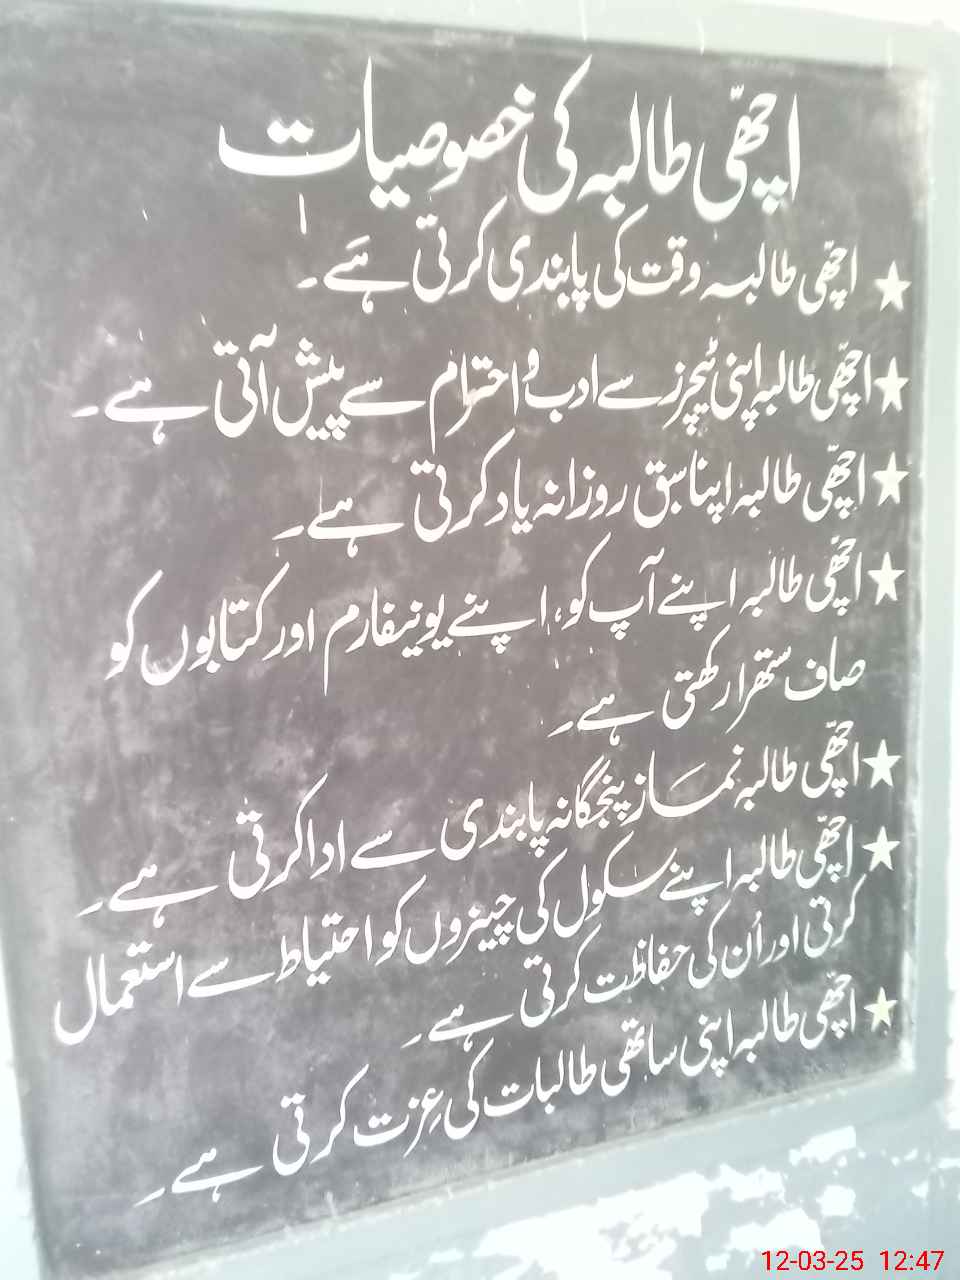 اچھّی طالبہ کی خصوصیات
★ اچھّی طالبہ وقت کی پابندی کرتی ہے۔
★ اچھّی طالبہ اپنی ٹیچرز سے ادب و احترام سے پیش آتی ہے۔
★ اچھّی طالبہ اپنا سبق روزانہ یاد کرتی ہے۔
★ اچھّی طالبہ اپنے آپ کو، اپنے یونیفارم اور کتابوں کو
صاف ستھرا رکھتی ہے۔
★ اچھّی طالبہ نماز پنجگانہ پابندی سے ادا کرتی ہے۔
★ اچھّی طالبہ اپنے سکول کی چیزوں کو احتیاط سے استعمال
کرتی اور اُن کی حفاظت کرتی ہے۔
★ اچھّی طالبہ اپنی ساتھی طالبات کی عِزت کرتی ہے۔
12-03-25 12:47